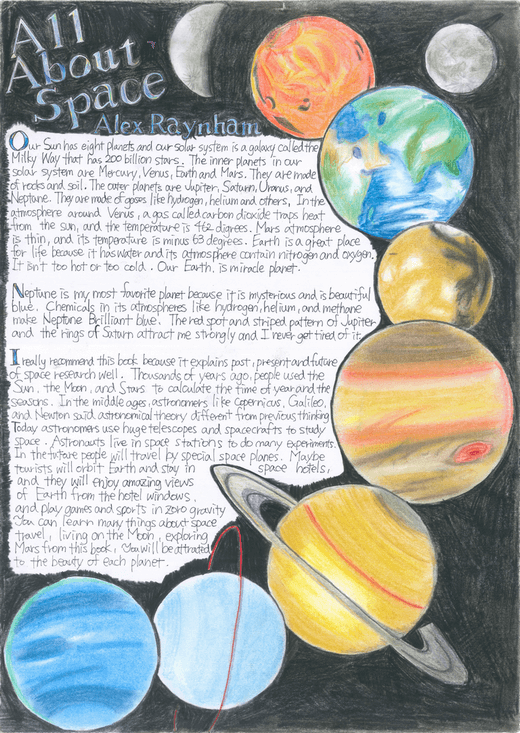 All
About
Space
Alex Raynham
Our Sun has eight planets and our solar system is a galaxy called the
Milky Way that has 200 billion stars. The inner planets in our
solar system are Mercury, Venus, Earth and Mars. They are made
of rocks and soil. The outer planets are Jupiter, Saturn, Uranus, and
Neptune. They are made of gases like hydrogen, helium and others, In the
atmosphere around Venus, a gas called carbon dioxide traps heat
from the sun, and the temperature is 462 degrees. Mars atmosphere
is thin, and its temperature is minus 63 degrees. Earth is a great place
for life because it has water and its atmosphere contain nitrogen and oxygen.
It isn't too hot or too cold. Our Earth, is miracle planet.
Neptune is my most favorite planet because it is mysterious and is beautiful
blue. Chemicals in its atmospheres like hydrogen, helium, and methane
make Neptune Brilliant blue. The red spot and striped pattern of Jupiter
and the rings of Saturn attract me strongly and I never get tired of it.
I really recommend this book because it explains past, present and future
of space research well. Thousands of years ago, people used the
Sun, the Moon, and Stars to calculate the time of year and the
seasons. In the middle ages, astronomers like Copernicus, Galileo,
and Newton said astronomical theory different from previous thinking
Today astronomers use huge telescopes and spacecrafts to study
space. Astronauts live in space stations to do many experiments.
In the future people will travel by special space planes. Maybe
tourists will orbit Earth and stay in space hotels,
and they will enjoy amazing views
of Earth from the hotel windows,
and play games and sports in zero gravity
You can learn many things about space
travel, living on the Moon, exploring
Mars from this book, You will be attracted
to the beauty of each planet.